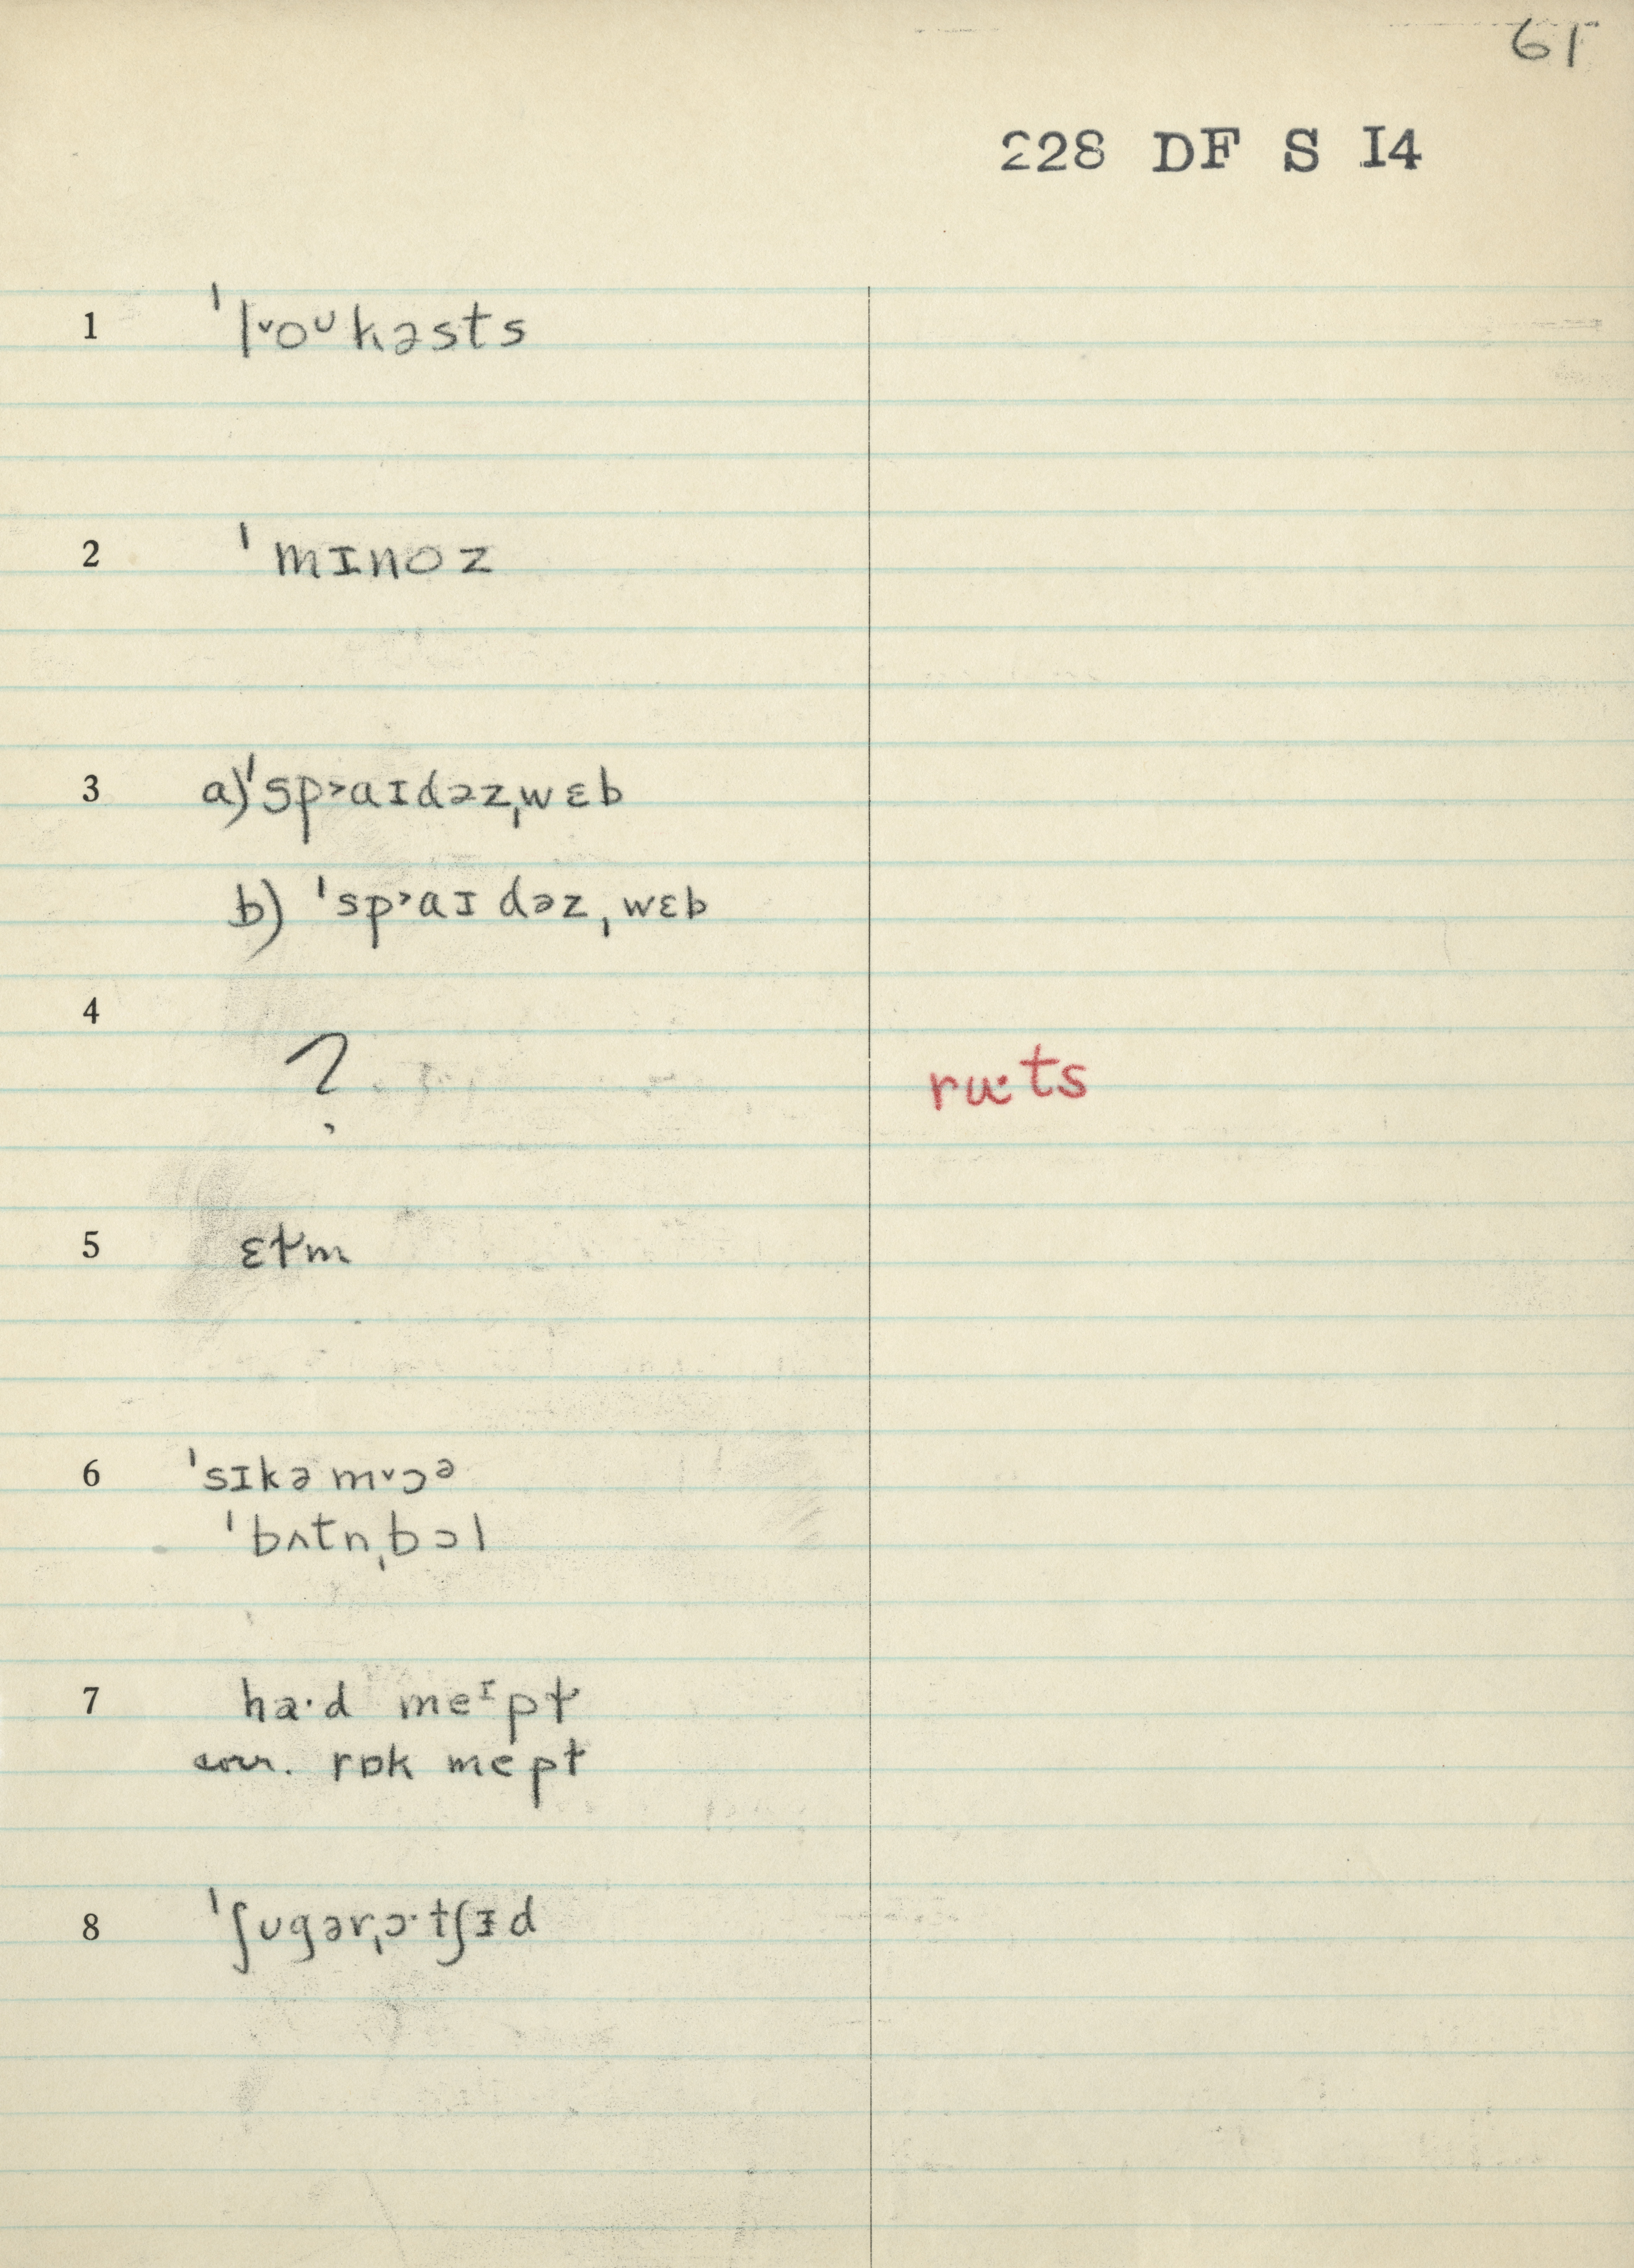 61
228 DF S I4
1 ˈl˅oᶷkəsts
2 ˈmɪnoz
3 a) ˈsp˃aɪdəzˌwɛb
b) ˈsp˃aɪdəzˌwɛb
4
? ru:ts
5 ɛɫm
6 ˈsɪkəm˅ɔᵊ
ˈbʌtnˌbɔl
7 ha·d meᶦpɫ
corr. rɒk mepɫ
8 ˈʃʊgərˌɔ·tʃɪd